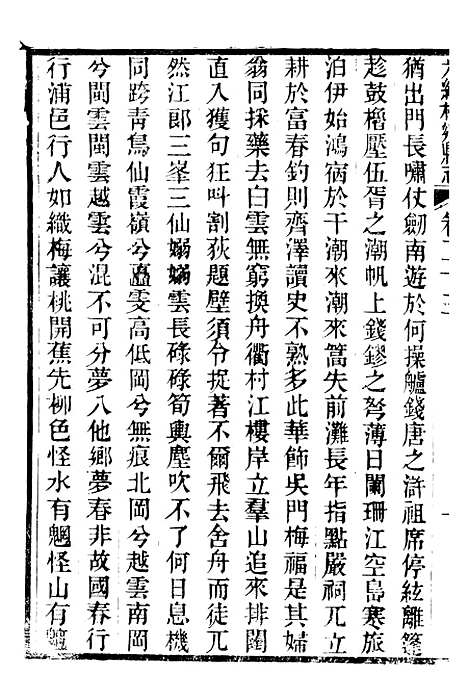 猶出門長嘯仗劒南遊於何操艫錢唐之滸祖席停絃離篷
趁鼓櫓壓伍胥之潮帆上錢鏐之弩薄日闌珊江空島寒旅
泊伊始鴻宿於干潮來潮來篙失前灘長年指點嚴祠兀立
耕於富春釣則齊澤讀史不熟多此華飾吳門梅福是其婦
翁同採藥去白雲無窮換舟衢村江樓岸立羣山追來排闥
直入獲句狂叫割荻題壁須令捉著不爾飛去舍舟而徒兀
然江郎三峯三仙嫋嫋雲長碌碌筍輿塵吹不了何日息機
同跨青鳥仙霞嶺兮矗雯高低岡兮無痕北岡兮越雲南岡
兮閩雲閩雲越雲兮混不可分夢入他鄉夢春非故國春行
行浦邑行人如織梅讓桃開蕉先柳色怪水有魍怪山有魖